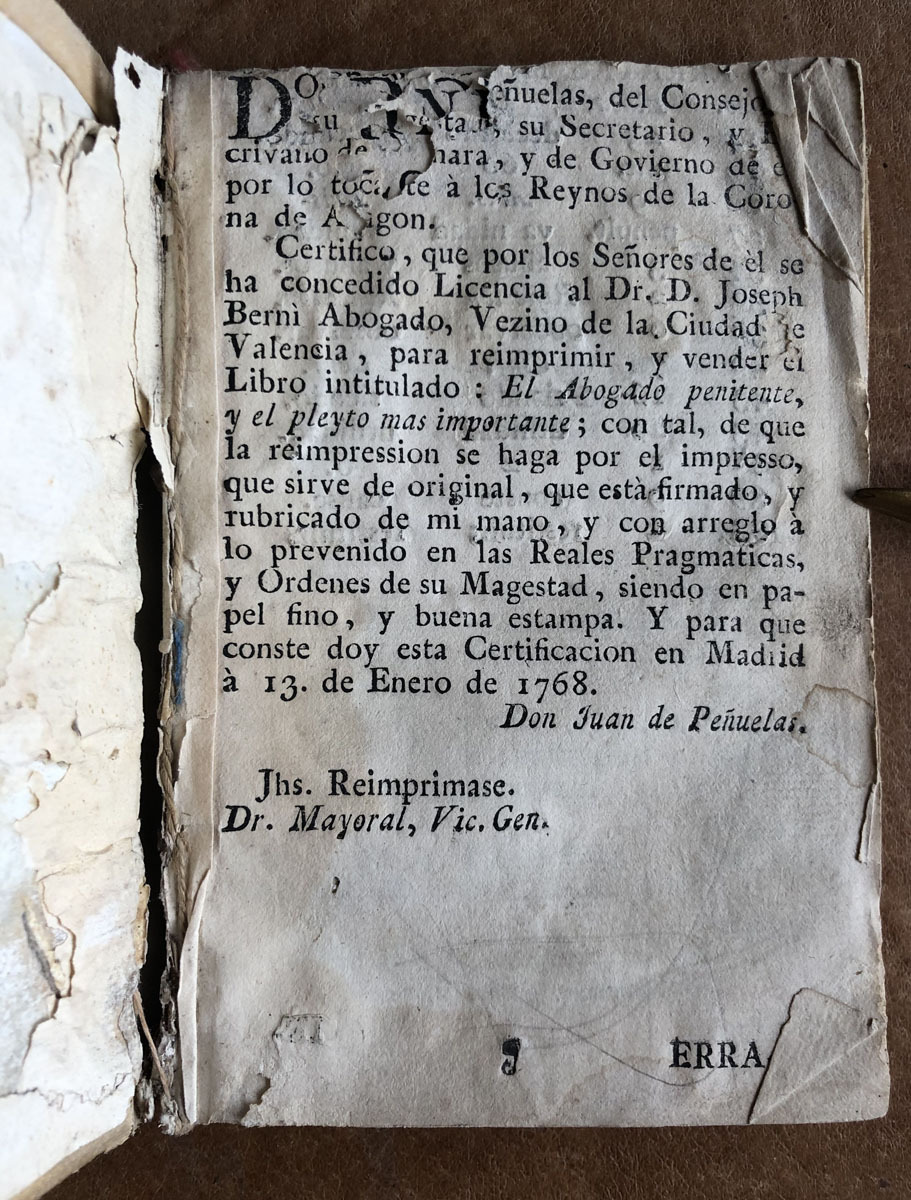 Peñuelas, del Consejo
su Secretario, y
crivano de mara, y de Govierno de
por lo tocante à los Reynos de la Coro
na de Aragon.
Certifico, que por los Señores de èl se
ha concedido Licencia al Dr. D. Joseph
Bernì Abogado, Vezino de la Ciudad de
Valencia, para reimprimir, y vender el
Libro intitulado: El Abogado penitente,
y el pleyto mas importante; con tal, de que
la reimpression se haga por el impresso,
que sirve de original, que està firmado, y
rubricado de mi mano, y con arreglo à
lo prevenido en las Reales Pragmaticas,
y Ordenes de su Magestad, siendo en pa-
pel fino, y buena estampa. Y para que
conste doy esta Certificacion en Madrid
à 13. de Enero de 1768.
Don Juan de Peñuelas.
Jhs. Reimprimase.
Dr. Mayoral, Vic. Gen.
ERRA